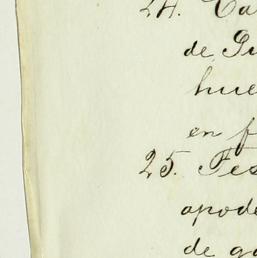 24. Ca
de Gu
hue
en f
25. Tes
apode
de go